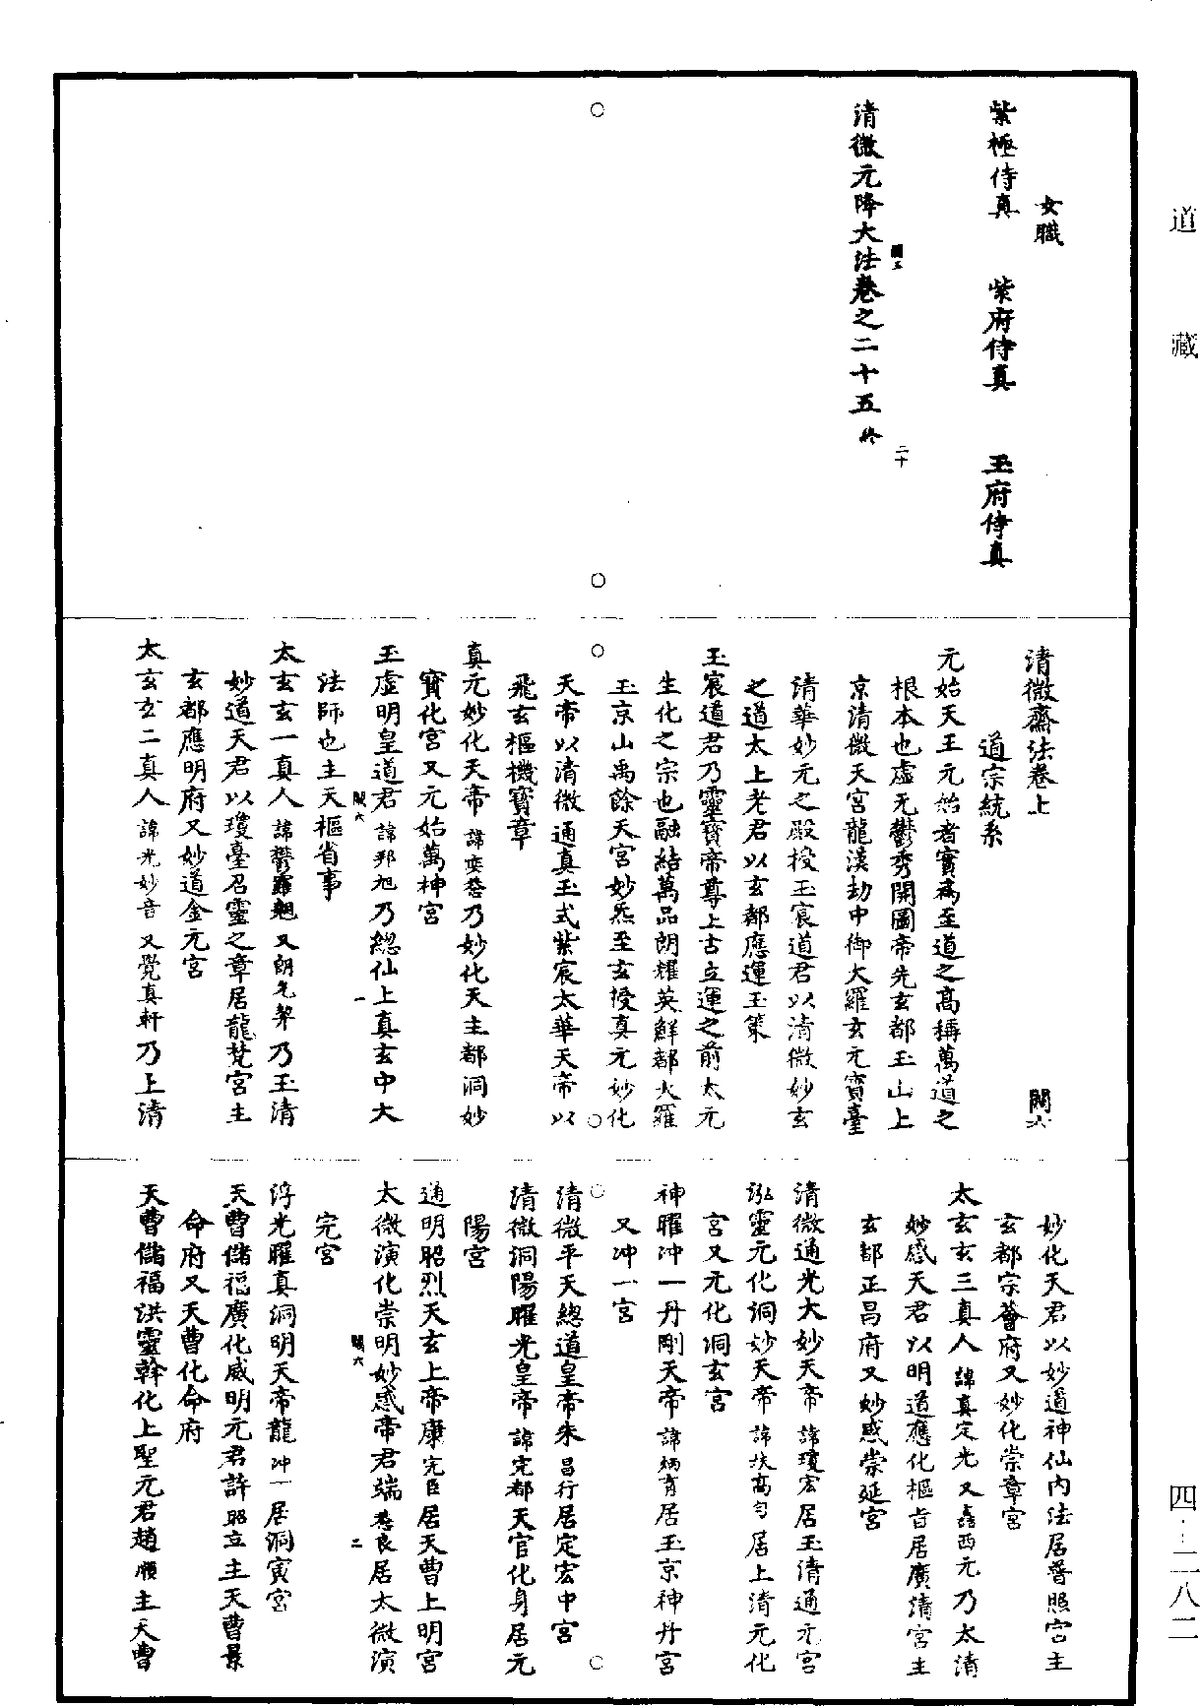 道藏
女職
紫極侍真　紫府侍真　玉府侍真
關五　二十
清微元降大法卷之二十五終
清微齋法卷上　關六
道宗統系
元始天王元始者實為至道之高稱萬道之
根本也虛无鬱秀開圖帝先玄都玉山上
京清微天宮龍漢劫中御大羅玄元寶臺
清華妙元之殿授玉宸道君以清微妙玄
之道太上老君以玄都應運玉策
玉宸道君乃靈寶帝尊上古立運之前太元
生化之宗也融結萬品朗耀英鮮都大羅
玉京山禹餘天宮妙炁至玄授真元妙化
天帝以清微通真玉式紫宸太華天帝以
飛玄樞機寶章
真元妙化天帝諱奕乃妙化天主都洞妙
寶化宮又元始萬神宮
玉虛明皇道君諱邦旭乃總仙上真玄中大
關六　一
法師也主天樞省事
太玄玄一真人諱鬱羅翹又朗光契乃玉清
妙道天君以瓊臺召靈之章居龍梵宮主
玄都應明府又妙道金元宮
太玄玄二真人諱光妙音又覺真軒乃上清
妙化天君以妙道神仙內法居普照宮主
玄都宗薈府又妙化崇章宮
太玄玄三真人諱真定光又鑫西元乃太清
妙感天君以明道應化樞旨居廣清宮主
玄都正昌府又妙感崇延宮
清微通光大妙天帝諱瓊宏居玉清通元宮
泓靈元化洞妙天帝諱扶高勻居上清元化
宮又元化洞玄宮
神曜冲一丹剛天帝諱炳育居玉京神丹宮
又冲一宮
清微平天總道皇帝朱昌行居定宏中宮
清微洞陽曜光皇帝諱完都天官化身居元
陽宮
通明昭烈天玄上帝康完臣居天曹上明宮
太微演化崇明妙感帝君端惷良居太微演
關六　二
完宮
浮光曜真洞明天帝龍冲一居洞寅宮
天曹儲福廣化威明元君許昭立主天曹景
命府又天曹化命府
天曹儲福洪靈幹化上聖元君趙順主天曹
四·二八二